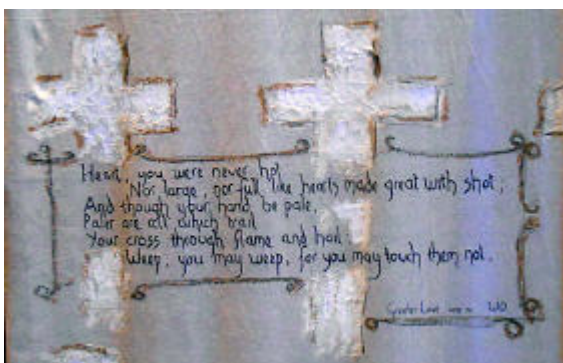 Heart, you were never hot
Nor large, nor full like hearts made great with shot;
And though your hand be pale,
Paler are all which trail
Your cross through flame and hail:
Weep, you may weep, for you may touch them not.
Greater Love